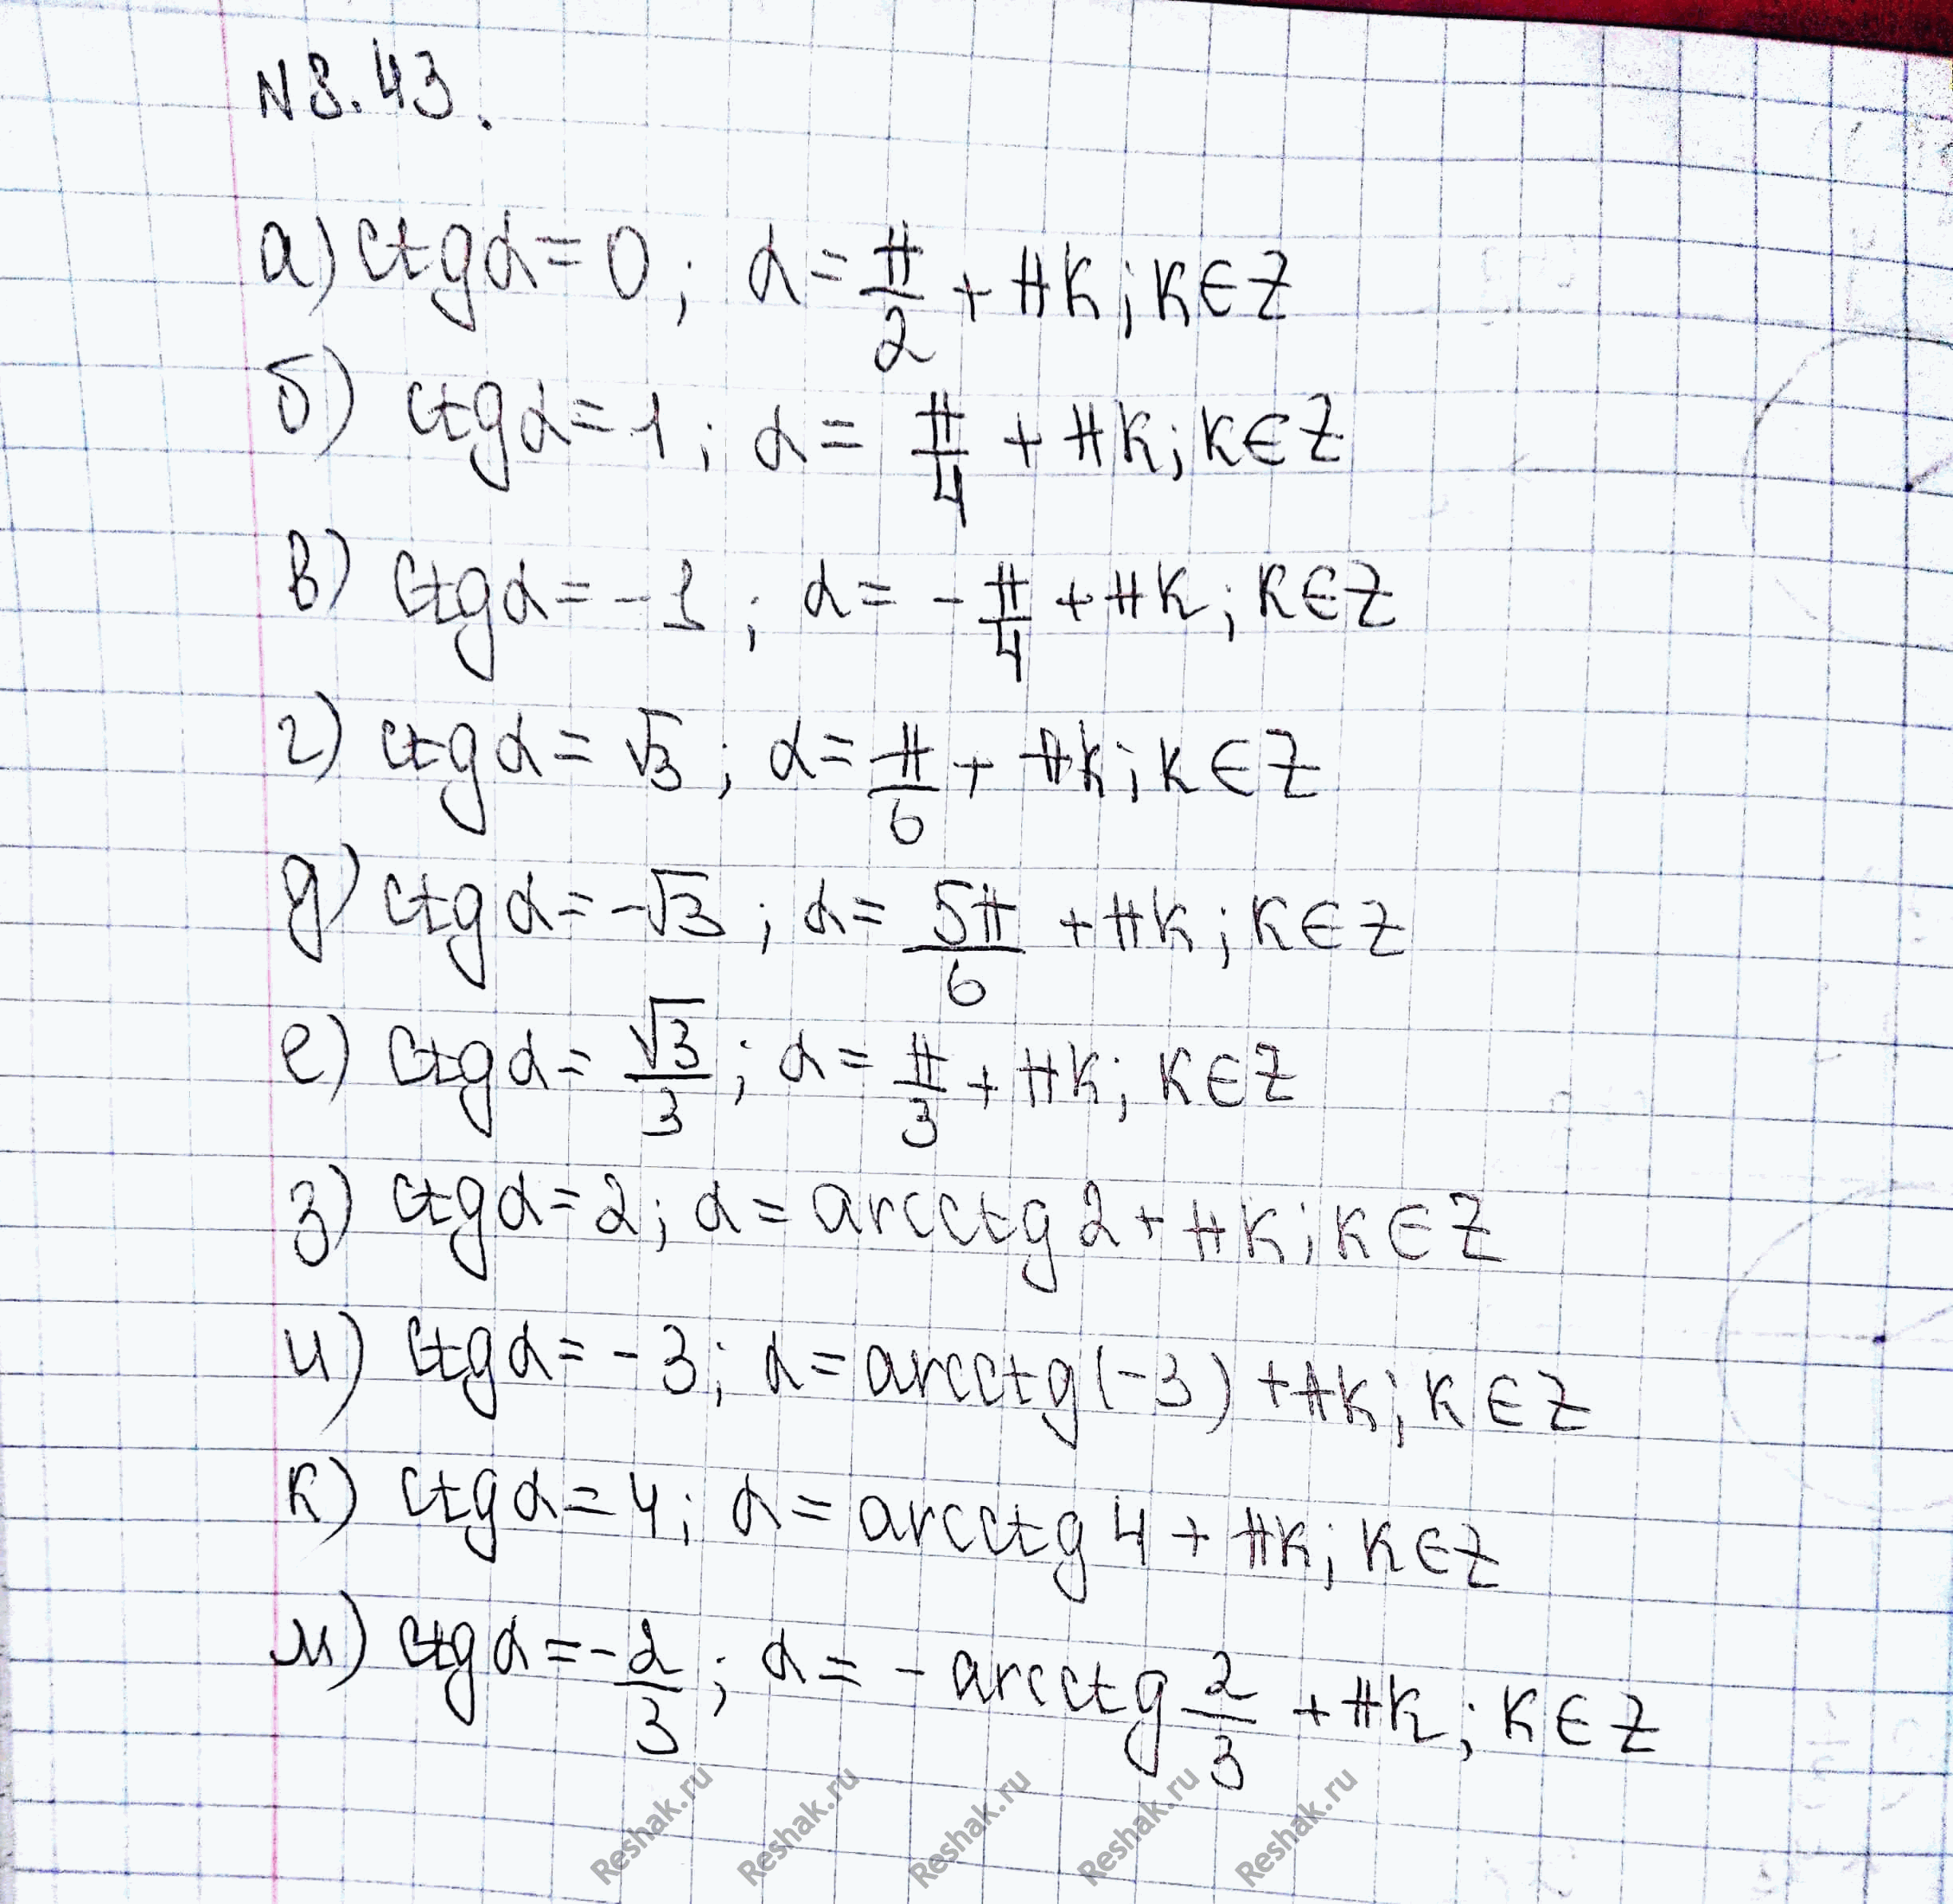 N 8.43.
а) ctgα = 0; α = π/2 + πk; k∈Z
б) ctgα = 1; α = π/4 + πk; k∈Z
в) ctgα = -1; α = -π/4 + πk; k∈Z
г) ctgα = √3; α = π/6 + πk; k∈Z
д) ctgα = -√3; α = 5π/6 + πk; k∈Z
е) ctgα = √3/3; α = π/3 + πk; k∈Z
з) ctgα = 2; α = arcctg 2 + πk; k∈Z
и) ctgα = -3; α = arcctg(-3) + πk; k∈Z
к) ctgα = 4; α = arcctg 4 + πk; k∈Z
м) ctgα = -2/3; α = -arcctg 2/3 + πk; k∈Z
Reshak.ru Reshak.ru Reshak.ru Reshak.ru Reshak.ru